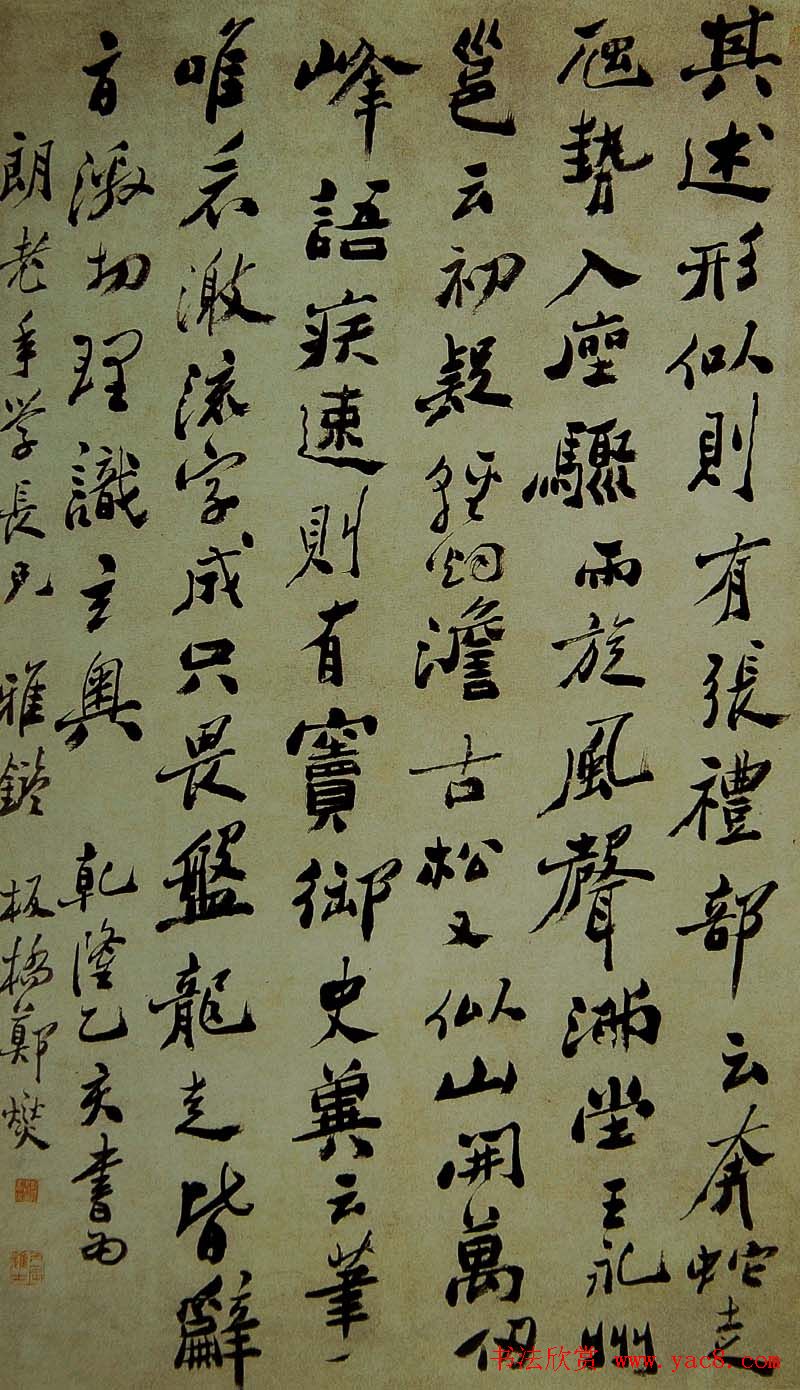 其述形似則有張禮部云奔蛇走
虺勢入座驟雨旋風聲滿堂王永州
邕云初疑輕煙澹古松又似山開萬仞
峰語疾速則有竇御史冀云筆下
唯看激流字成只畏盤龍走皆辭
旨激切理識玄奧 乾隆乙亥書為
朗老年學長兄 雅鑒 板橋鄭燮
书法欣赏 www.yac8.com